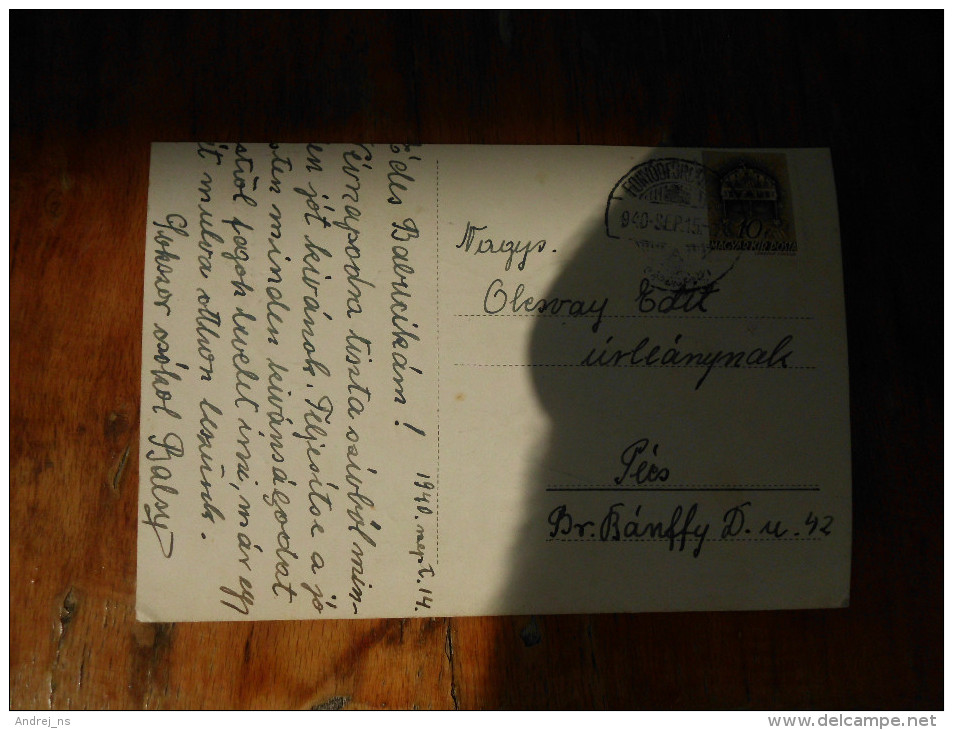 Édes Babucikám!
1940. szept. 14.
Névnapodra tiszta szívből min-
en jót kívánok. Teljesítse a jó
sten minden kívánságodat
stről fogok levelet írni, már egy
ét mulva otthon leszünk.
Sokszor csókol Balsy
940.SEP.15.
10
MAGYAR KIR. POSTA
Nagys.
Olcsvay Edit
úrleánynak
Pécs
Br. Bánffy D. u. 42
Andrej_ns
delcampe.net